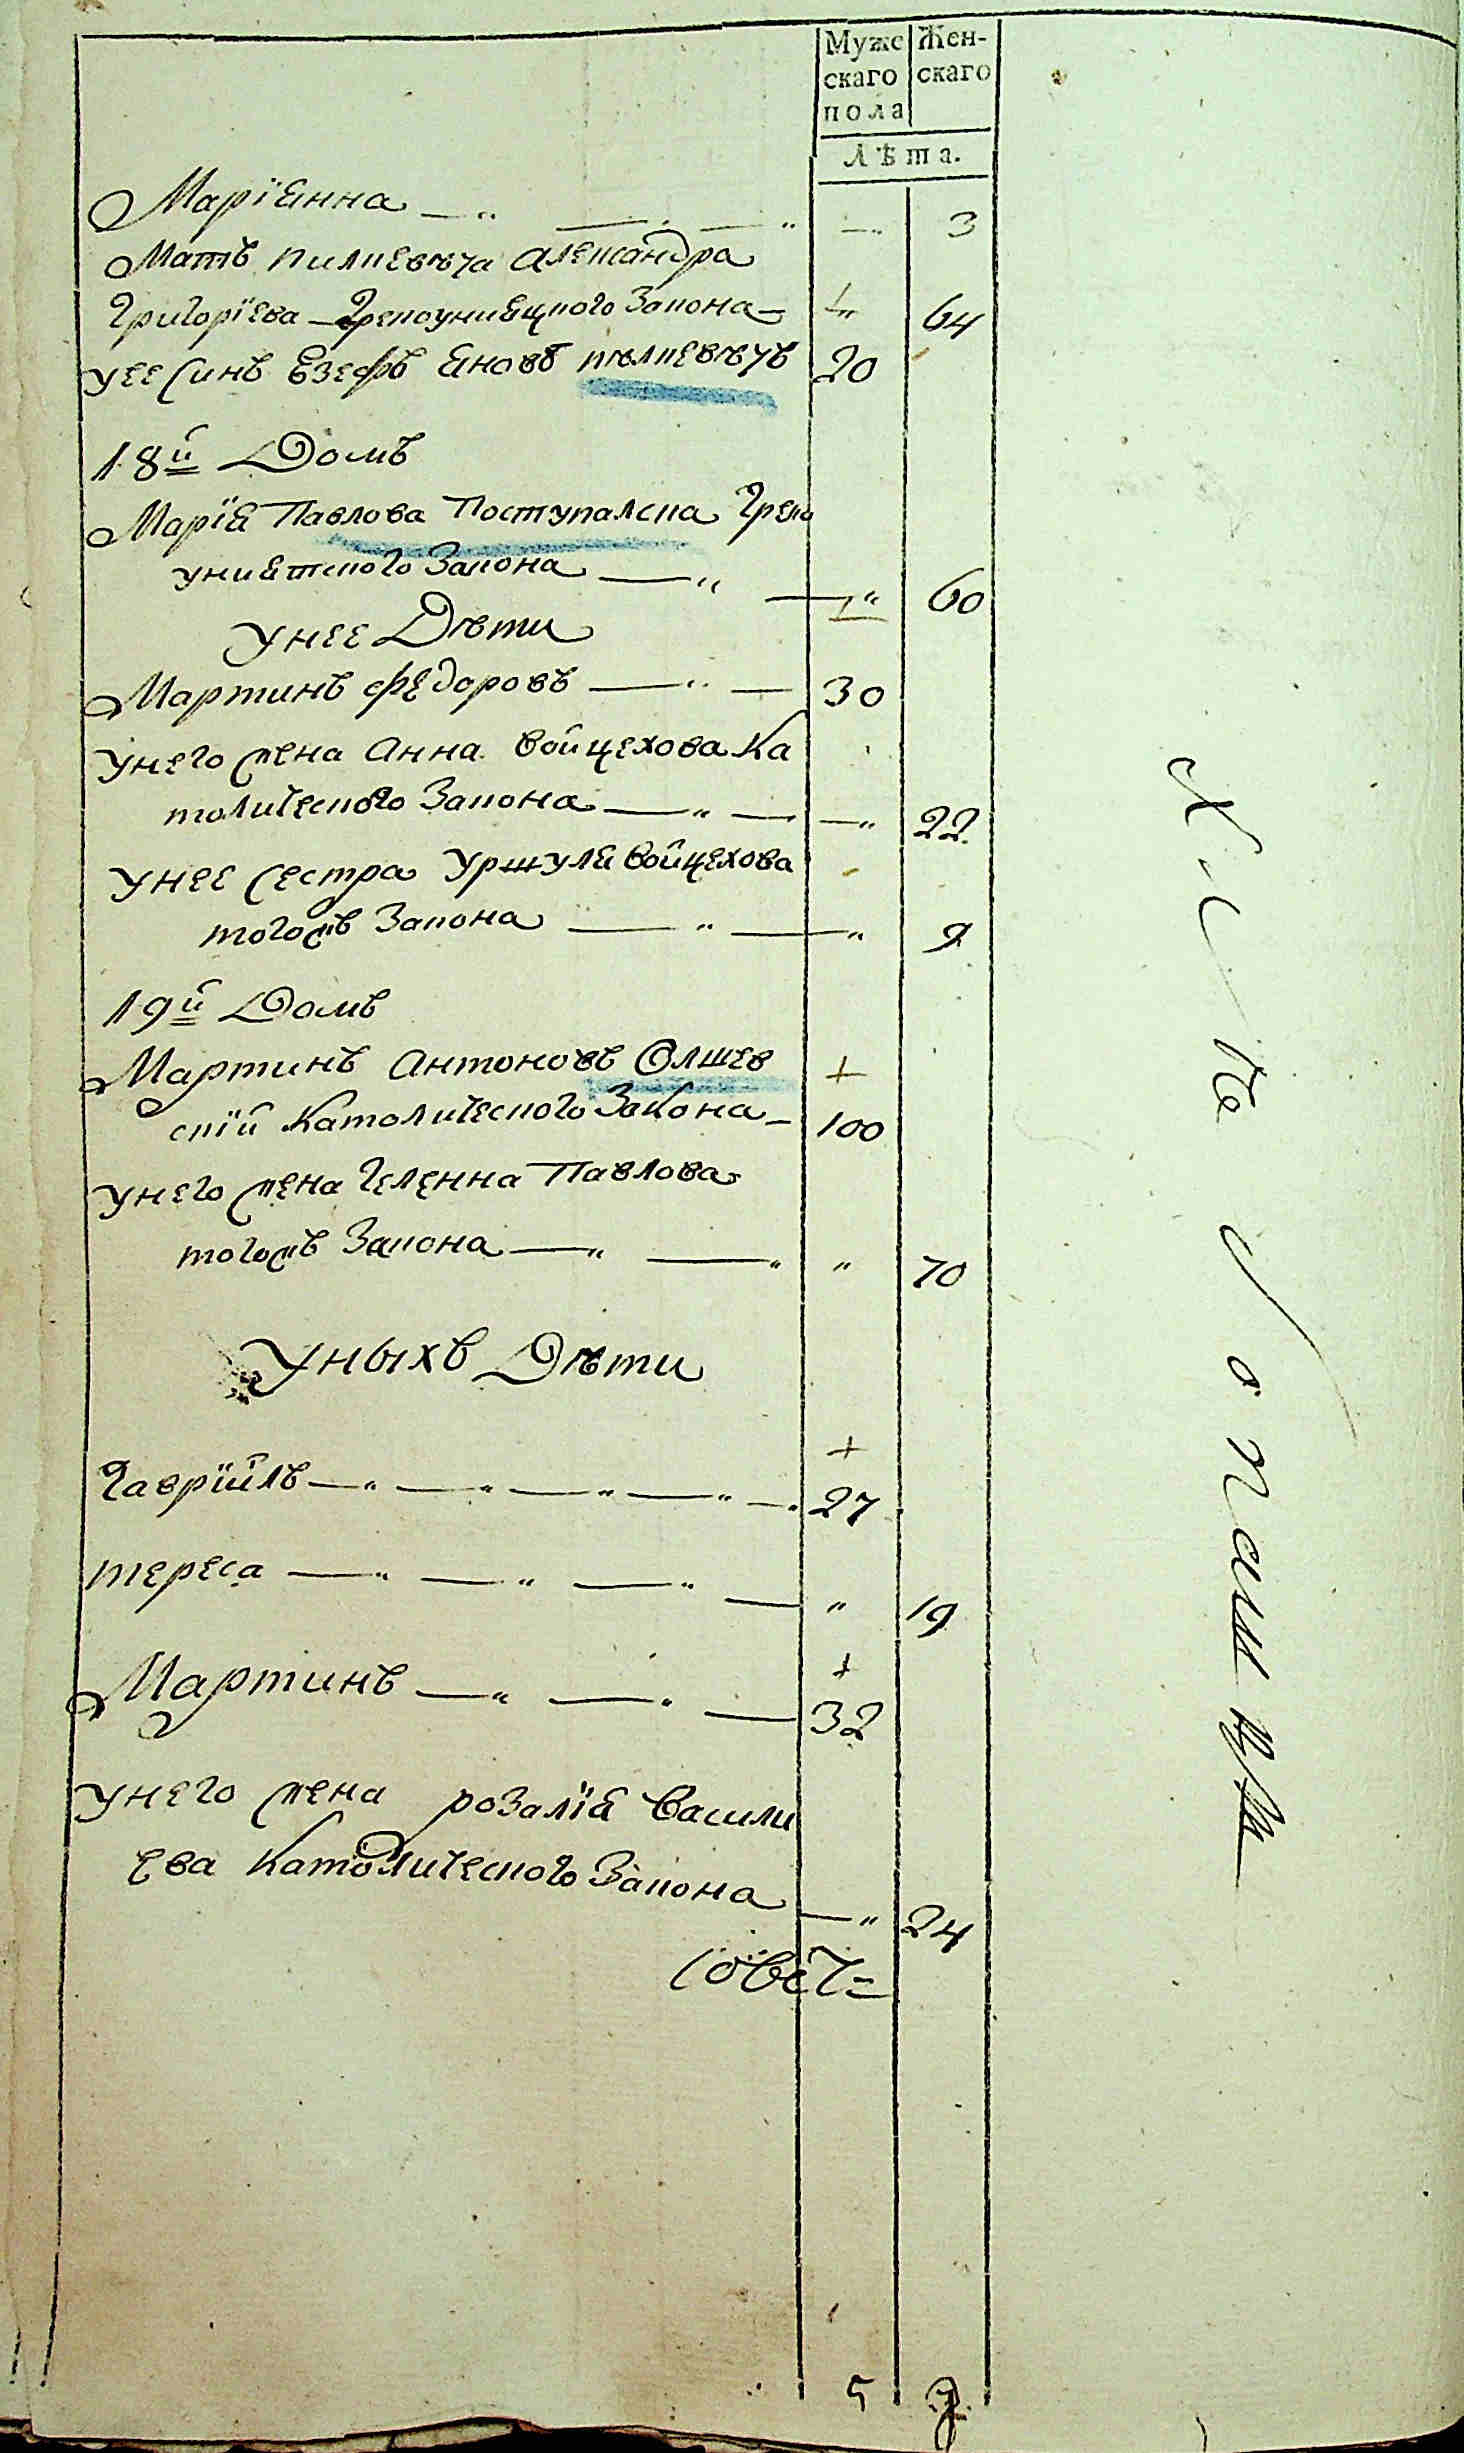 Мужс Жен-
скаго скаго
пола
Лѣта.
Маріянна 3
Мать Пилкевича Александра
Григоріева Грекоуніяцкого Закона 64
уее Синъ Езефъ Яновъ Пилкевичъ 20
18й Домъ
Марія Павлова Поступалска Греко
униятского Закона 60
унее Дѣти
Мартинъ Федоровъ 30
унего жена Анна Войцехова Ка
толического Закона 22
унее Сестра Уршуля Войцехова
тогожъ Закона 9
19й Домъ
Мартинъ Антоновъ Олшев
скій Католического Закона 100
унего жена Геленна Павлова
тогожъ Закона 70
Уныхъ Дѣти
Гавріилъ 27
тереса 19
Мартинъ 32
унего жена розалія Васили
ева Католического Закона 24
5